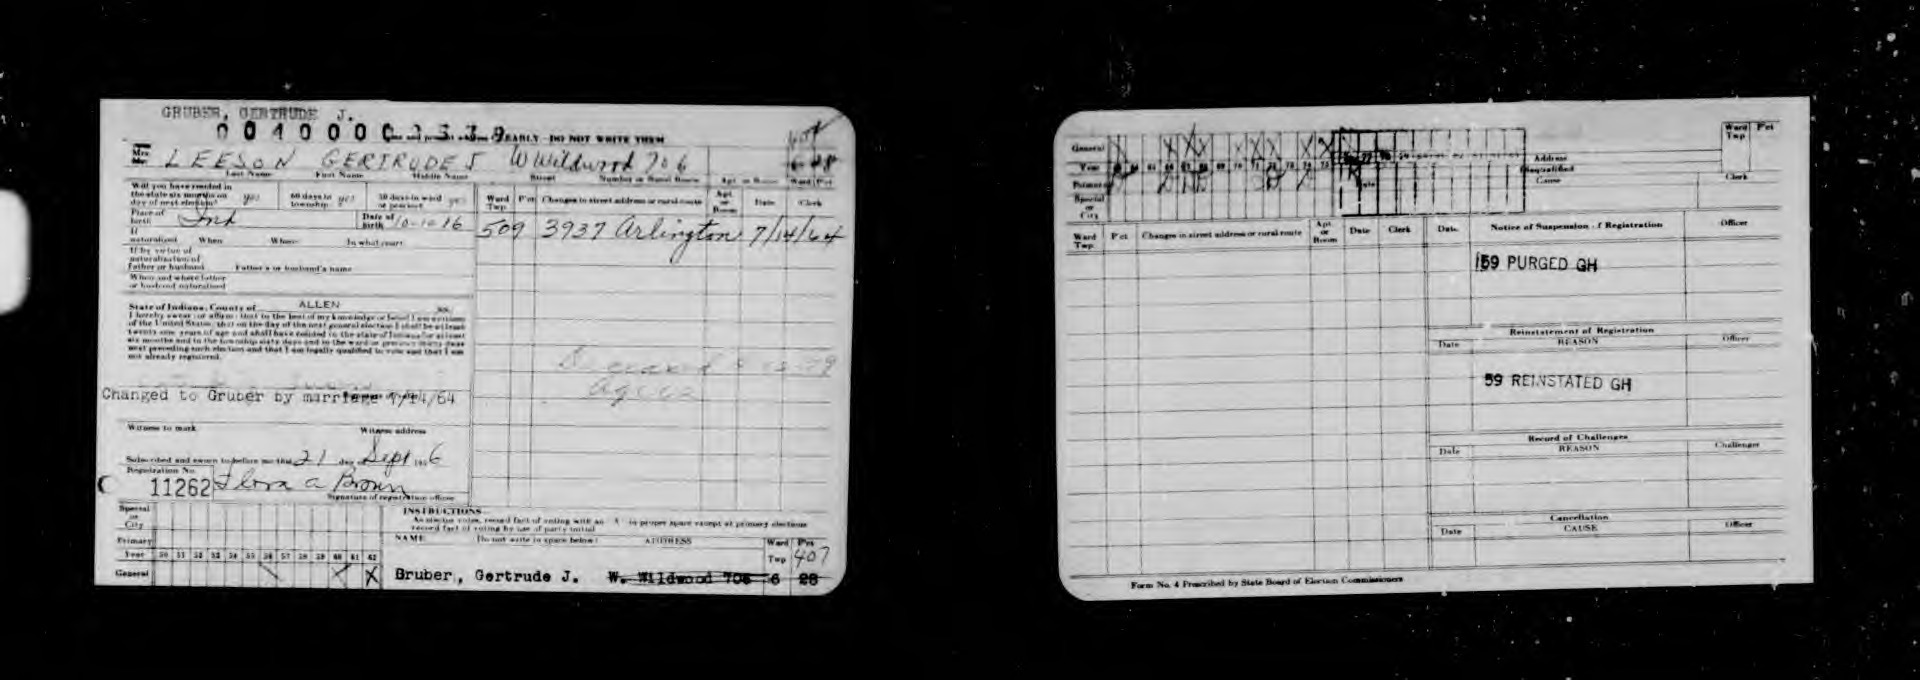 GRUBER, GERTRUDE J.
EARLY - DO NOT WRITE THEM
Mrs. LEESON GERTRUDE J W Wildwood 706
Last Name First Name Middle Name Street Number or Rural Route Apt. or Room Ward Pct
Will you have resided in the state six months on day of next election? yes 60 days in township? yes 30 days in ward or precinct yes
Place of birth Ind Date of birth 10-10-16
If naturalized When Where In what court
If by virtue of naturalization of Father or husband Father's or husband's name
When and where father or husband naturalized
State of Indiana, County of ALLEN ss:
I hereby swear or affirm that to the best of my knowledge or belief I am a citizen
of the United States; that on the day of the next general election I shall be at least
twenty-one years of age and shall have resided in the state of Indiana for at least
six months and in the township sixty days and in the ward or precinct thirty days
next preceding such election and that I am legally qualified to vote and that I am
not already registered.
Changed to Gruber by marriage 7/14/64
Witness to mark Witness address
Subscribed and sworn to before me this 21 day Sept 6
Registration No. 11262 Flora A Brown
Signature of registration officer
Ward Twp Pct Changes in street address or rural route Apt. or Room Date Clerk
509 3937 Arlington 7/14/64
Special or City
Primary
Year 50 51 52 53 54 55 56 57 58 59 60 61 62
General X
INSTRUCTIONS
As elector votes, record fact of voting with an X in proper space except at primary elections
record fact of voting by use of party initial
NAME (Do not write in space below) ADDRESS Ward Twp Pct 407
Gruber, Gertrude J. W. Wildwood 706 6 28
General
Year
Primary
Special or City
Address
Disqualified
Cause
Clerk
Ward Twp Pct
Ward Twp Pct Changes in street address or rural route Apt. or Room Date Clerk
Date Notice of Suspension of Registration Officer
59 PURGED GH
Reinstatement of Registration
Date REASON Officer
59 REINSTATED GH
Record of Challenges
Date REASON Challenger
Cancellation
Date CAUSE Officer
Form No. 4 Prescribed by State Board of Election Commissioners